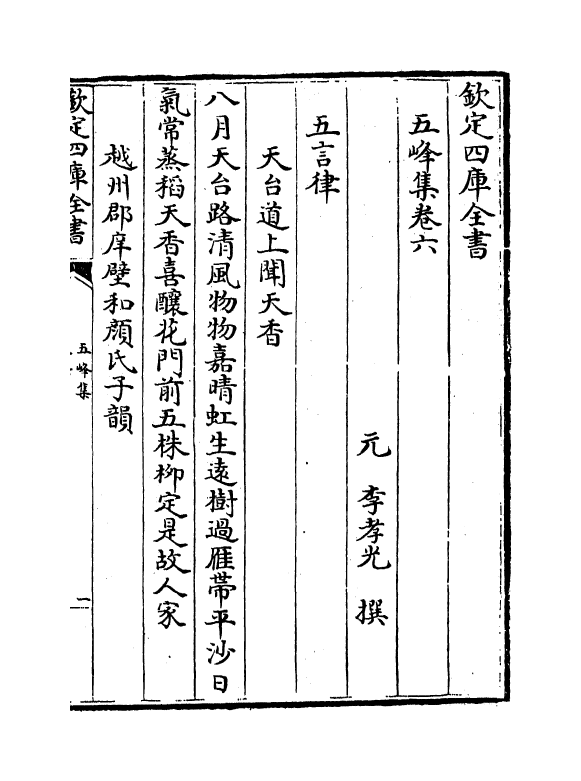 欽定四庫全書
五峰集卷六
元 李孝光 撰
五言律
天台道上聞天香
八月天台路清風物物嘉晴虹生遠樹過雁帶平沙日
氣常蒸稻天香喜釀花門前五株柳定是故人家
越州郡庠壁和顔氏子韻
欽定四庫全書
五峰集
一